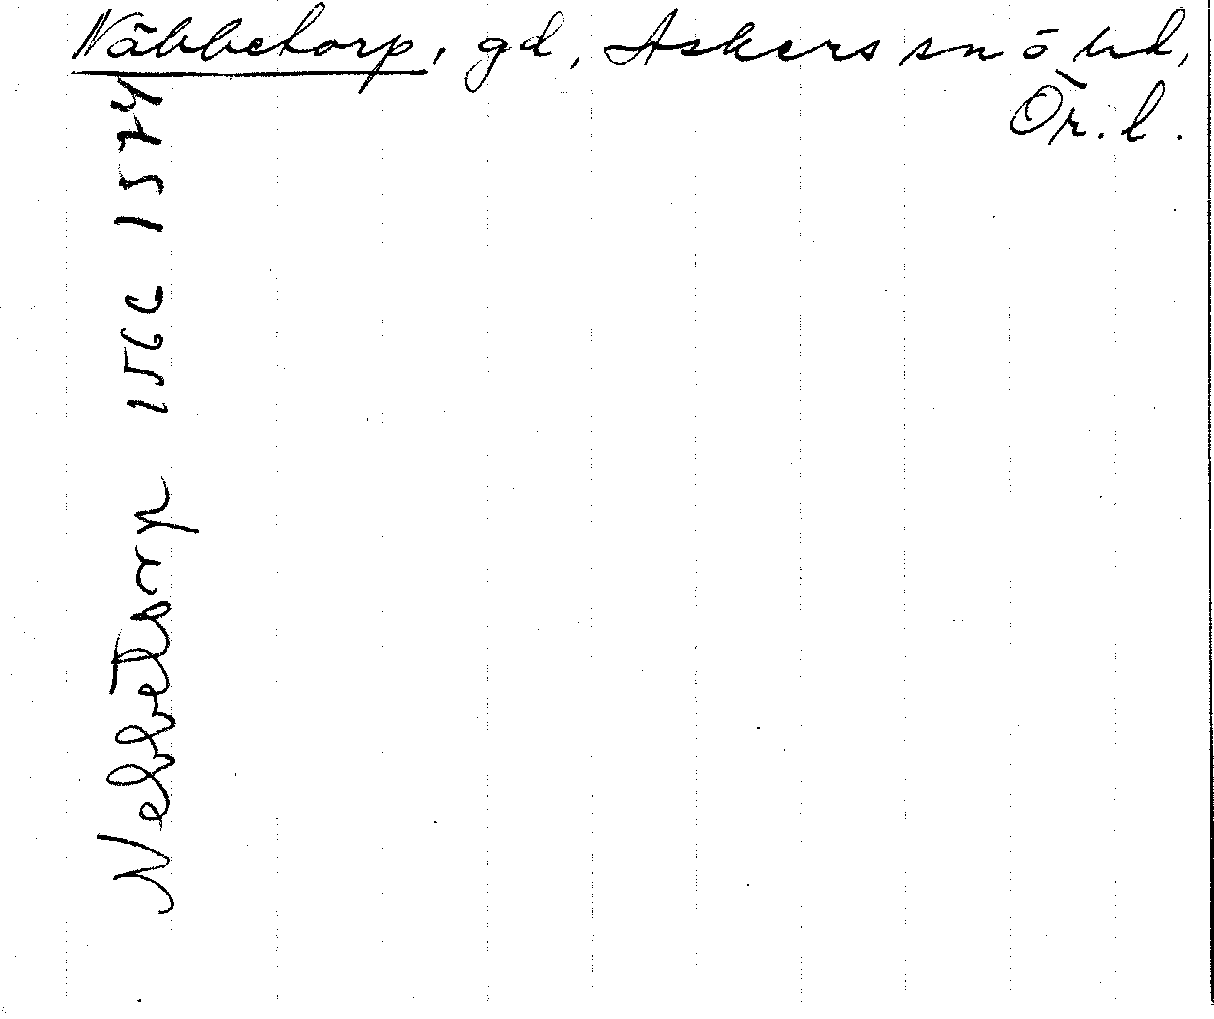 Näbbetorp, gd, Askers sn ō hd,
Ör. l.
Nebbetorp 1566 1574